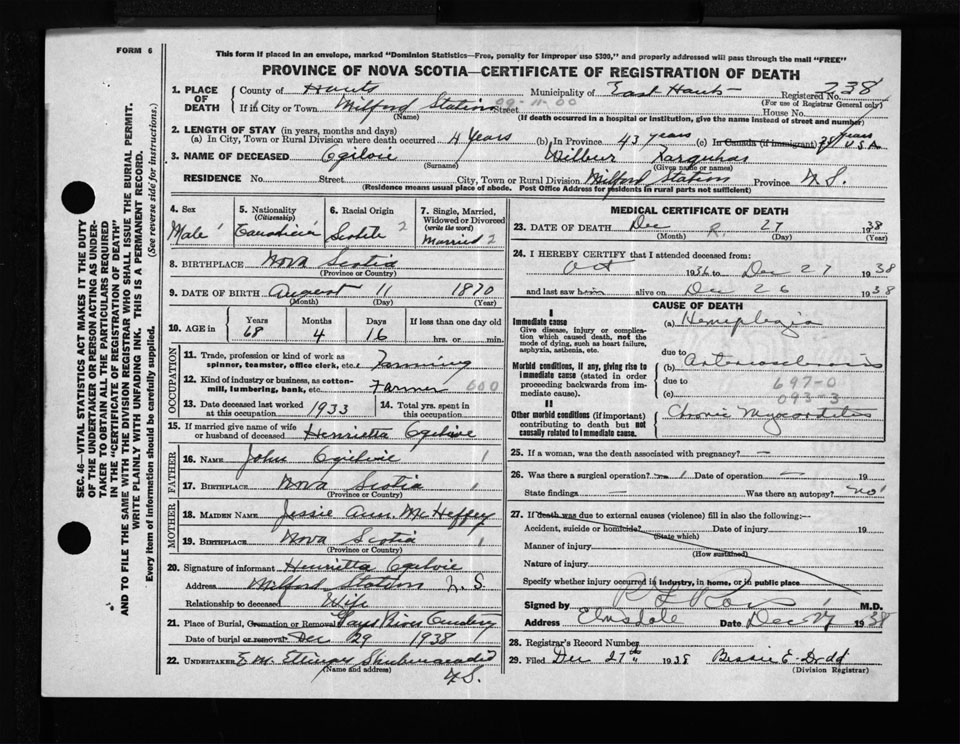 FORM 6
This form if placed in an envelope, marked "Dominion Statistics—Free, penalty for improper use $300," and properly addressed will pass through the mail "FREE"
PROVINCE OF NOVA SCOTIA—CERTIFICATE OF REGISTRATION OF DEATH
1. PLACE OF DEATH
County of Hants Municipality of East Hants Registered No. 238
(For use of Registrar General only)
If in City or Town Milford Station Street 00-11-00 House No.
(Name) (If death occurred in a hospital or institution, give the name instead of street and number)
2. LENGTH OF STAY (in years, months and days)
(a) In City, Town or Rural Division where death occurred 4 Years (b) In Province 43 years (c) In Canada (if immigrant) years U.S.A.
3. NAME OF DECEASED Ogilvie Wilbur Farquhar
(Surname) (Given name or names)
RESIDENCE No. Street City, Town or Rural Division Milford Station Province N.S.
(Residence means usual place of abode. Post Office Address for residents in rural parts not sufficient)
4. Sex
Male
5. Nationality (Citizenship)
Canadian
6. Racial Origin
Scotch 2
7. Single, Married, Widowed or Divorced (write the word)
Married 2
8. BIRTHPLACE Nova Scotia
(Province or Country)
9. DATE OF BIRTH August 11 1870
(Month) (Day) (Year)
10. AGE in Years Months Days If less than one day old
68 4 16 hrs. or min.
OCCUPATION
11. Trade, profession or kind of work as spinner, teamster, office clerk, etc. Farming
12. Kind of industry or business, as cotton-mill, lumbering, bank, etc. Farmer 000
13. Date deceased last worked at this occupation 1933
14. Total yrs. spent in this occupation
15. If married give name of wife or husband of deceased Henrietta Ogilvie
FATHER
16. NAME John Ogilvie
17. BIRTHPLACE Nova Scotia
(Province or Country)
MOTHER
18. MAIDEN NAME Jessie Ann McHeffey
19. BIRTHPLACE Nova Scotia
(Province or Country)
20. Signature of informant Henrietta Ogilvie
Address Milford Station N.S.
Relationship to deceased Wife
21. Place of Burial, Cremation or Removal River Cemetery
Date of burial or removal Dec 29 1938
22. UNDERTAKER E.M. Shubenacadie
N.S.
MEDICAL CERTIFICATE OF DEATH
23. DATE OF DEATH Dec R. 27 1938
(Month) (Day) (Year)
24. I HEREBY CERTIFY that I attended deceased from:
Oct 1936 to Dec 27 1938
and last saw him alive on Dec 26 1938
CAUSE OF DEATH
I
Immediate cause
Give disease, injury or complication which caused death, not the mode of dying, such as heart failure, asphyxia, asthenia, etc.
(a) Hemiplegia
due to
Morbid conditions, if any, giving rise to immediate cause (stated in order proceeding backwards from immediate cause).
(b) Arteriosclerosis
due to 697-0
(c) 093-3
II
Other morbid conditions (if important) contributing to death but not causally related to immediate cause.
Chronic Myocarditis
25. If a woman, was the death associated with pregnancy? —
26. Was there a surgical operation? Date of operation —
State findings — Was there an autopsy? no
27. If death was due to external causes (violence) fill in also the following:—
Accident, suicide or homicide? Date of injury 19
(State which)
Manner of injury
(How sustained)
Nature of injury
Specify whether injury occurred in industry, in home, or in public place
Signed by M.D.
Address Elmsdale Date Dec 27 1938
28. Registrar's Record Number
29. Filed Dec 27th 1938 Bessie E. Dodd
(Division Registrar)
SEC. 46—VITAL STATISTICS ACT MAKES IT THE DUTY
OF THE UNDERTAKER OR PERSON ACTING AS UNDER-
TAKER TO OBTAIN ALL THE PARTICULARS REQUIRED
IN THE "CERTIFICATE OF REGISTRATION OF DEATH"
AND TO FILE THE SAME WITH THE DIVISION REGISTRAR WHO SHALL ISSUE THE BURIAL PERMIT.
WRITE PLAINLY WITH UNFADING INK. THIS IS A PERMANENT RECORD.
Every item of information should be carefully supplied. (See reverse side for instructions.)